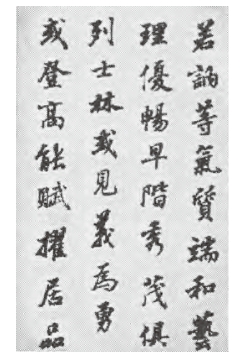 若訥等氣質端和藝
理優暢早階秀茂俱
列士林或見義為勇
或登高能賦擢居品